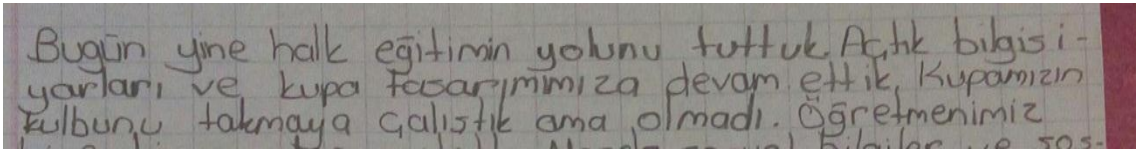 Bugün yine halk eğitimin yolunu tuttuk. Açtık bilgisi-
yarları ve kupa tasarımımıza devam ettik. Kupamızın
kulbunu takmaya çalıştık ama olmadı. Öğretmenimiz
bilgiler ve sos-